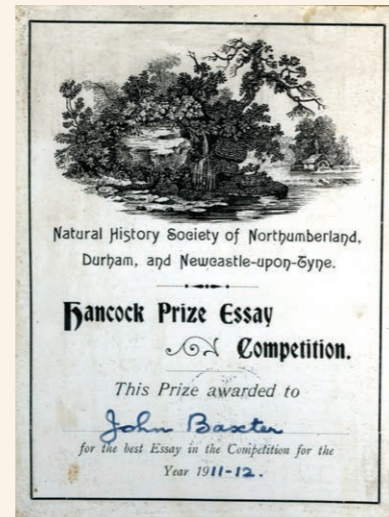 Natural History Society of Northumberland,
Durham, and Newcastle-upon-Tyne.
Hancock Prize Essay
Competition.
This Prize awarded to
John Baxter
for the best Essay in the Competition for the
Year 1911-12.